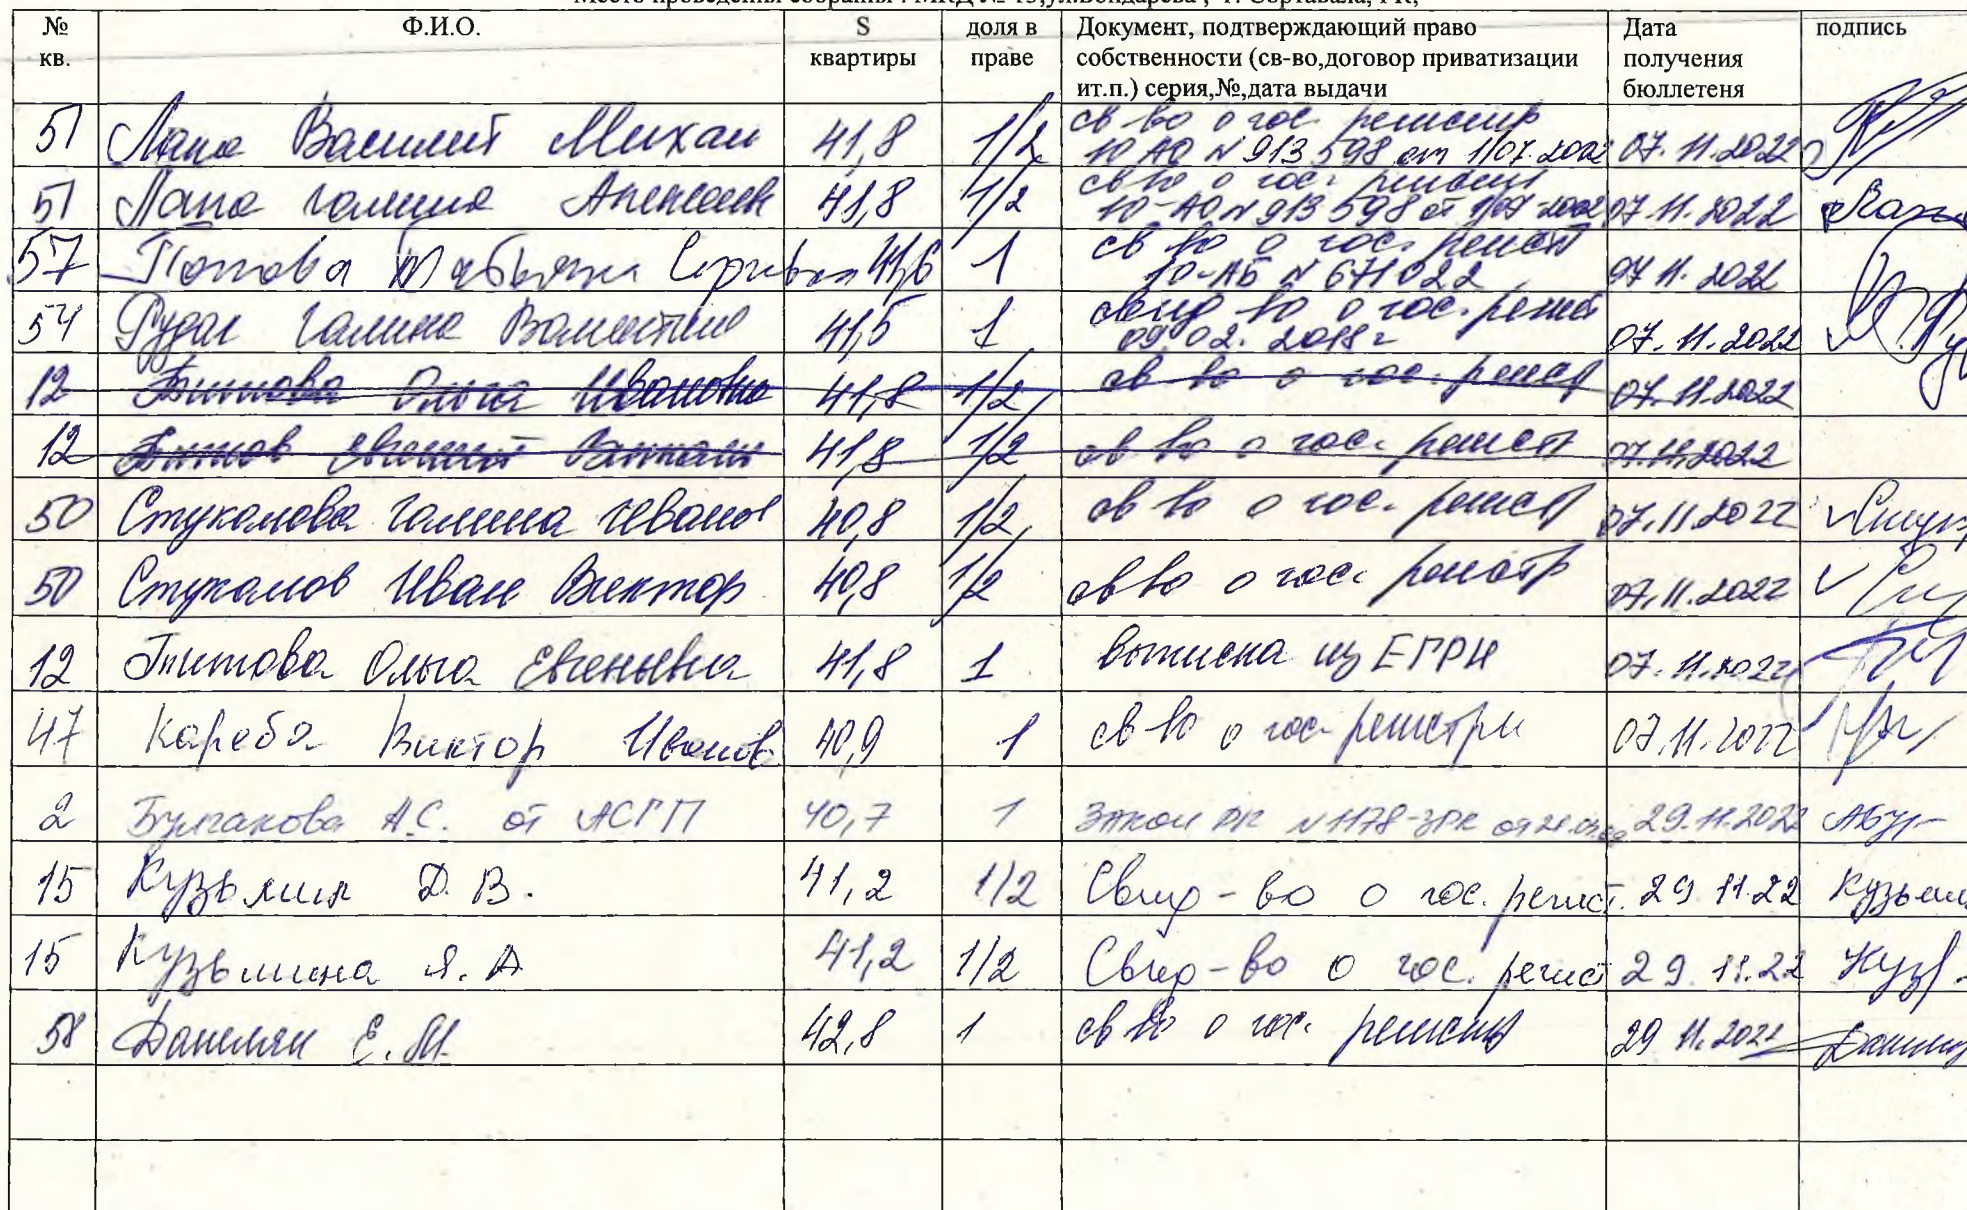 Место проведения собрания : МКД № 13,ул.Бондарева , г. Сортавала, РК,
№ кв. Ф.И.О. S квартиры доля в праве Документ, подтверждающий право собственности (св-во,договор приватизации ит.п.) серия,№,дата выдачи Дата получения бюллетеня подпись
51 Лапа Василий Михаи 41,8 1/2 св во о гос. регистр 10 АО № 913 598 от 1/07.2002 07.11.2022
51 Лапа Галина Алексеев 41,8 1/2 св во о гос. регистр 10-АО № 913 598 от 07.11.2022 Лапа
57 Попова Татьяна 41,6 1 св во о гос. регист 10-АБ № 671022 07.11.2022
54 Рудаг Галина Валентин 41,5 1 свид во о гос. регист 09 02. 2018г 07.11.2022
12 Титова Ольга Ивановна 41,8 1/2 св во о гос. регистр 07.11.2022
12 Титов Евгений 41,8 1/2 св во о гос. регист 07.11.2022
50 Стукалова Галина Иванов 40,8 1/2 св во о гос. регист 07.11.2022
50 Стукалов Иван Виктор 40,8 1/2 св во о гос. регистр 07.11.2022
12 Титова Ольга Евгеньевна 41,8 1 выписка из ЕГРН 07.11.2022
47 Кареба Виктор Иванов 40,9 1 св во о гос регистри 07.11.2022
2 Булгакова А.С. от АСГП 40,7 1 Закон РК №1178-ЗРК от 29.11.2022
15 Кузьмин Д. В. 41,2 1/2 Свид-во о гос. регист. 29 11.22 Кузьмин
15 Кузьмина Я. А 41,2 1/2 Свид-во о гос. регист 29.11.22 Кузь
58 Данилян Е. М. 42,8 1 св во о гос. регистр 29 11.2022